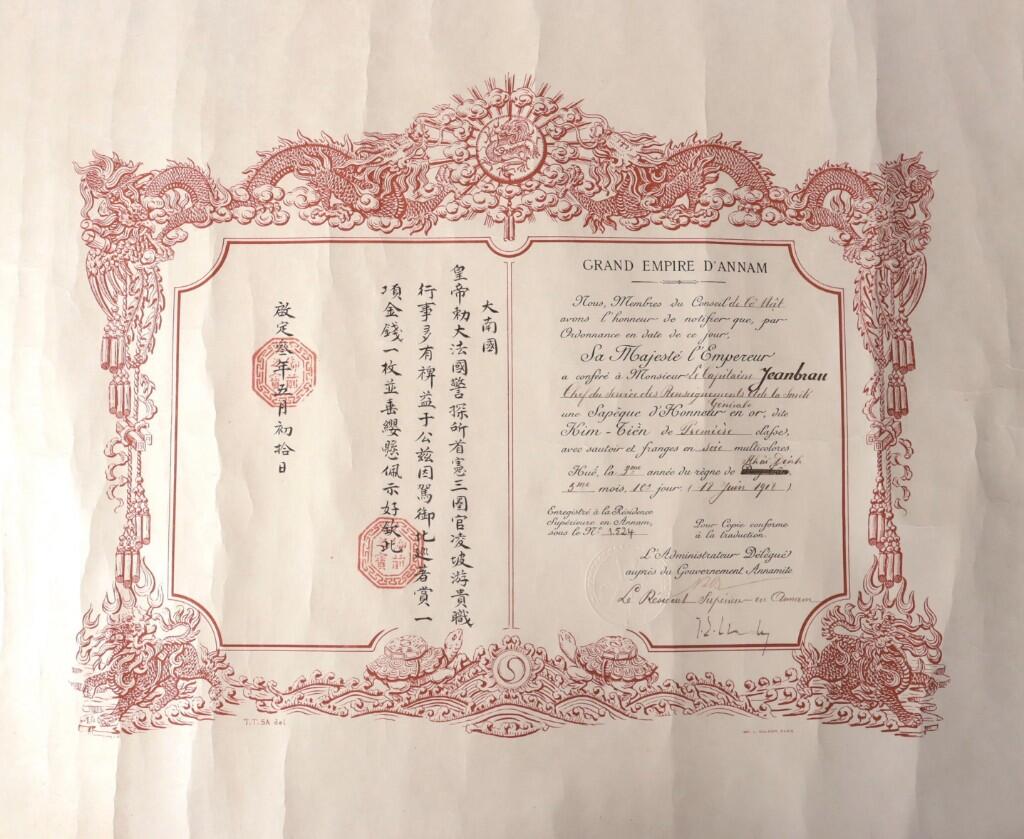 大南國
皇帝勅大法國警探所首憲三圈官凌坡游貴職
行事多有裨益于公茲因駕御北巡著賞一
項金錢一枚並垂纓懸佩示好欽此
啟定叄年五月初拾日
GRAND EMPIRE D'ANNAM
Nous, Membres du Conseil de Cơ Mật
avons l'honneur de notifier que, par
Ordonnance en date de ce jour,
Sa Majesté l'Empereur
a conféré à Monsieur le Capitaine Jeanbrau
Chef du Service des Renseignements et de la Sûreté
Générale
une Sapèque d'Honneur en or, dite
Kim-Tiên de Première classe,
avec sautoir et franges en soie multicolores
Hué, la 3ème année du règne de Khai Dinh
5me mois, 10e jour. (18 Juin 1918)
Enregistré à la Résidence
Supérieure en Annam,
sous le N° 1.524
Pour Copie conforme
à la traduction.
L'Administrateur Délégué
auprès du Gouvernement Annamite
Le Résident Supérieur en Annam
T.T. SA del